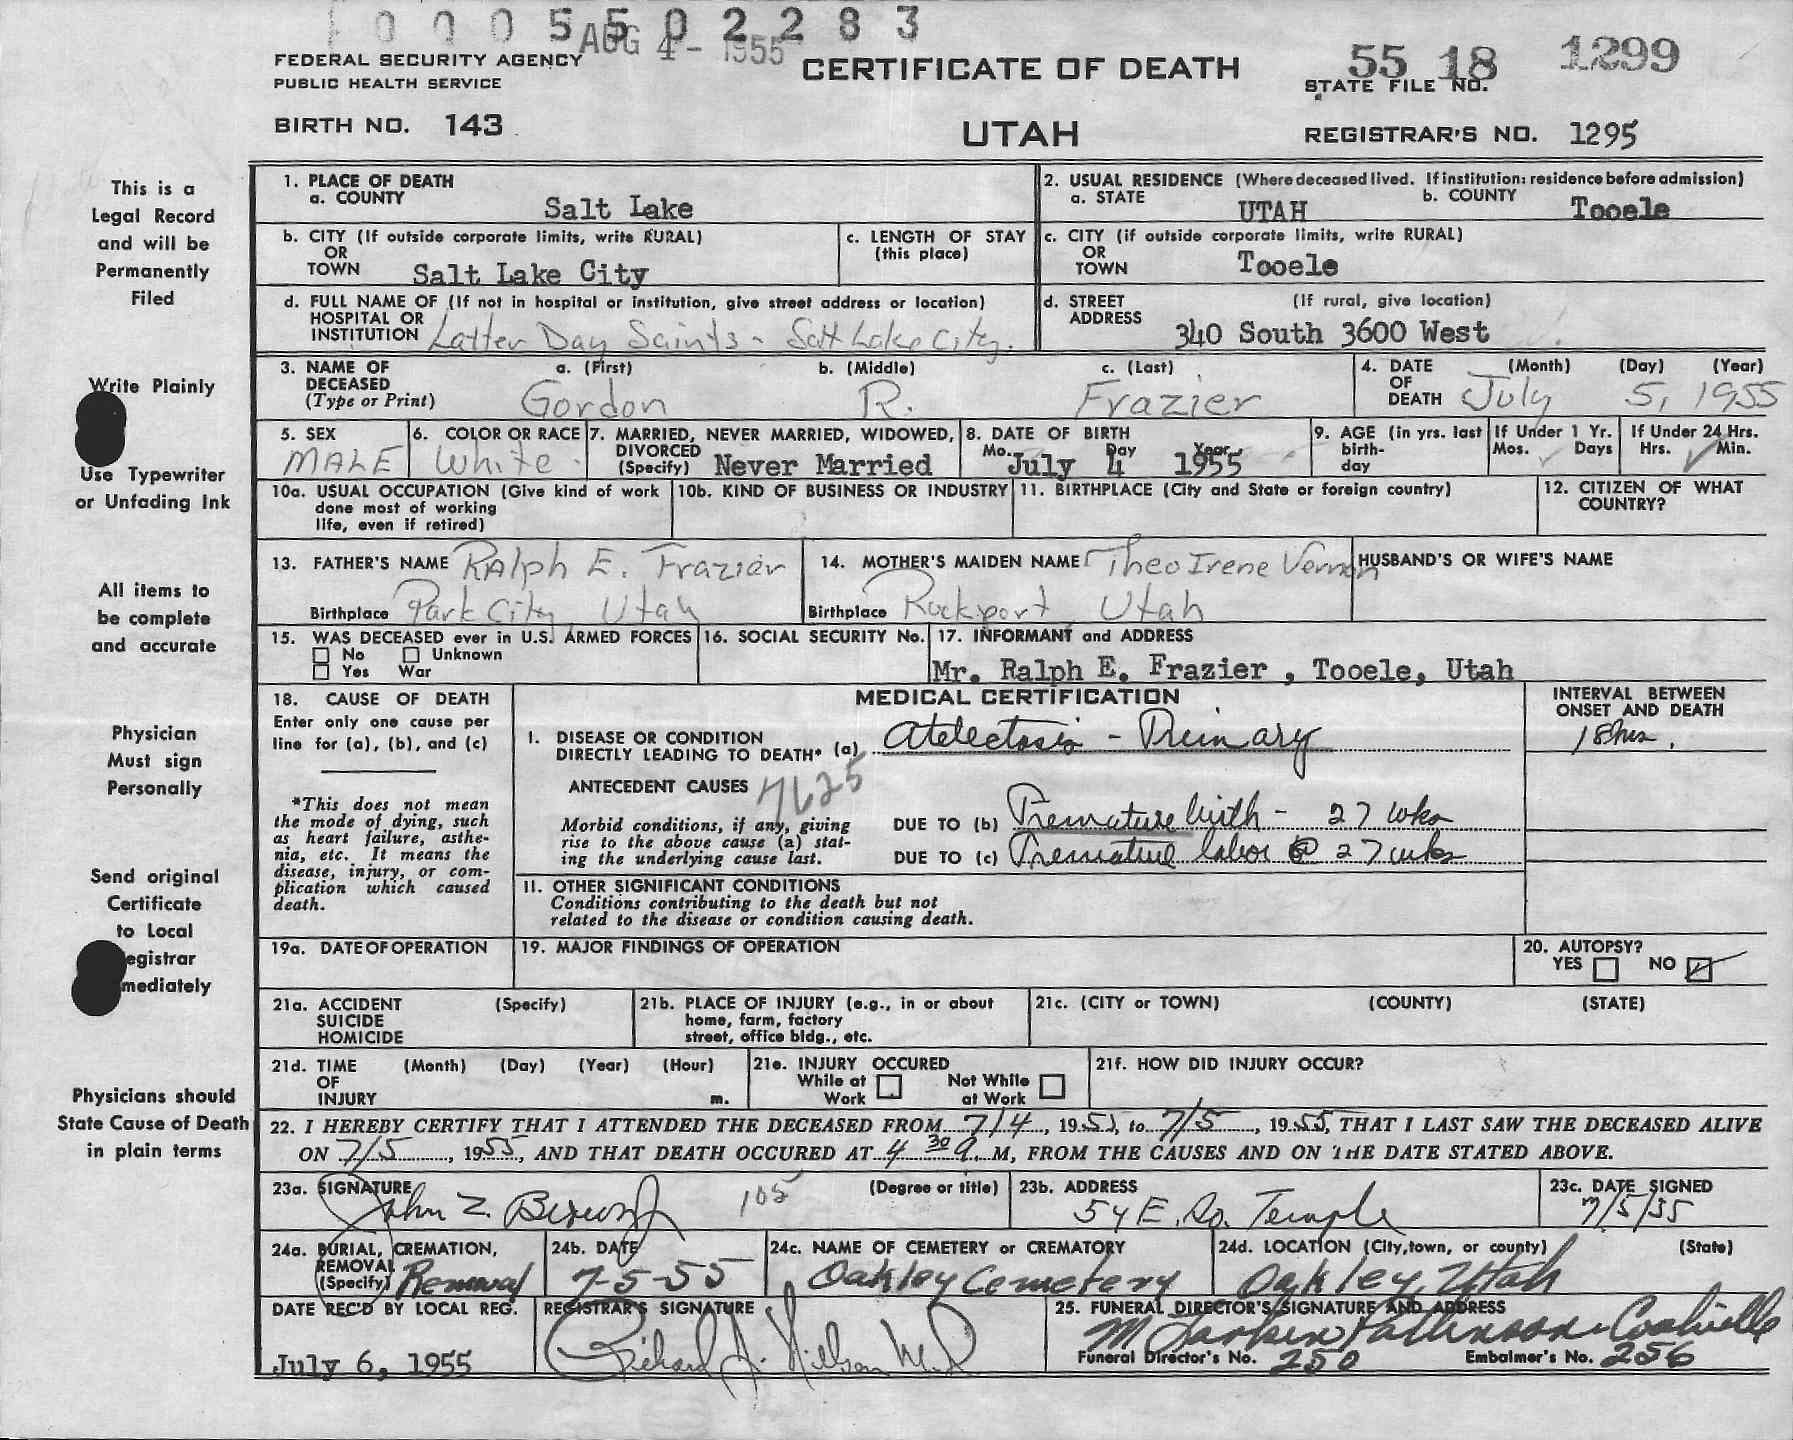 0005502283
AUG 4 - 1955
FEDERAL SECURITY AGENCY
PUBLIC HEALTH SERVICE
CERTIFICATE OF DEATH
55 18 1299
STATE FILE NO.
BIRTH NO. 143
UTAH
REGISTRAR'S NO. 1295
This is a
Legal Record
and will be
Permanently
Filed
Write Plainly
Use Typewriter
or Unfading Ink
All items to
be complete
and accurate
Physician
Must sign
Personally
Send original
Certificate
to Local
egistrar
mediately
Physicians should
State Cause of Death
in plain terms
1. PLACE OF DEATH
a. COUNTY Salt Lake
2. USUAL RESIDENCE (Where deceased lived. If institution: residence before admission)
a. STATE UTAH b. COUNTY Tooele
b. CITY (If outside corporate limits, write RURAL)
OR
TOWN Salt Lake City
c. LENGTH OF STAY
(this place)
c. CITY (if outside corporate limits, write RURAL)
OR
TOWN Tooele
d. FULL NAME OF (If not in hospital or institution, give street address or location)
HOSPITAL OR
INSTITUTION Latter Day Saints - Salt Lake City.
d. STREET (If rural, give location)
ADDRESS 340 South 3600 West
3. NAME OF a. (First) b. (Middle) c. (Last)
DECEASED
(Type or Print) Gordon R. Frazier
4. DATE (Month) (Day) (Year)
OF
DEATH July 5, 1955
5. SEX
MALE
6. COLOR OR RACE
White
7. MARRIED, NEVER MARRIED, WIDOWED,
DIVORCED
(Specify) Never Married
8. DATE OF BIRTH
Mo. Day Year
July 4 1955
9. AGE (in yrs. last
birth-
day
If Under 1 Yr.
Mos. Days
If Under 24 Hrs.
Hrs. Min.
10a. USUAL OCCUPATION (Give kind of work
done most of working
life, even if retired)
10b. KIND OF BUSINESS OR INDUSTRY
11. BIRTHPLACE (City and State or foreign country)
12. CITIZEN OF WHAT
COUNTRY?
13. FATHER'S NAME Ralph E. Frazier
Birthplace Park City, Utah
14. MOTHER'S MAIDEN NAME Theo Irene Vernon
Birthplace Rockport Utah
HUSBAND'S OR WIFE'S NAME
15. WAS DECEASED ever in U.S. ARMED FORCES
No Unknown
Yes War
16. SOCIAL SECURITY No.
17. INFORMANT and ADDRESS
Mr. Ralph E. Frazier , Tooele, Utah
18. CAUSE OF DEATH
Enter only one cause per
line for (a), (b), and (c)
*This does not mean
the mode of dying, such
as heart failure, asthe-
nia, etc. It means the
disease, injury, or com-
plication which caused
death.
MEDICAL CERTIFICATION
INTERVAL BETWEEN
ONSET AND DEATH
18 hrs.
I. DISEASE OR CONDITION
DIRECTLY LEADING TO DEATH* (a) Atelectasis - Primary
ANTECEDENT CAUSES 7625
Morbid conditions, if any, giving
rise to the above cause (a) stat-
ing the underlying cause last.
DUE TO (b) Premature birth - 27 wks
DUE TO (c) Premature labor @ 27 wks
II. OTHER SIGNIFICANT CONDITIONS
Conditions contributing to the death but not
related to the disease or condition causing death.
19a. DATE OF OPERATION
19. MAJOR FINDINGS OF OPERATION
20. AUTOPSY?
YES NO
21a. ACCIDENT (Specify)
SUICIDE
HOMICIDE
21b. PLACE OF INJURY (e.g., in or about
home, farm, factory
street, office bldg., etc.
21c. (CITY or TOWN) (COUNTY) (STATE)
21d. TIME (Month) (Day) (Year) (Hour)
OF
INJURY m.
21e. INJURY OCCURED
While at Work
Not While at Work
21f. HOW DID INJURY OCCUR?
22. I HEREBY CERTIFY THAT I ATTENDED THE DECEASED FROM 7/4, 1955, to 7/5, 1955, THAT I LAST SAW THE DECEASED ALIVE
ON 7/5, 1955, AND THAT DEATH OCCURED AT 4 30 a. M, FROM THE CAUSES AND ON THE DATE STATED ABOVE.
23a. SIGNATURE (Degree or title)
John Z. Brown Jr 105
23b. ADDRESS
54 E. So. Temple
23c. DATE SIGNED
7/5/55
24a. BURIAL, CREMATION,
REMOVAL
(Specify) Removal
24b. DATE
7-5-55
24c. NAME OF CEMETERY or CREMATORY
Oakley Cemetery
24d. LOCATION (City, town, or county) (State)
Oakley, Utah
DATE REC'D BY LOCAL REG.
July 6, 1955
REGISTRAR'S SIGNATURE
Richard A. Nielsen M.D
25. FUNERAL DIRECTOR'S SIGNATURE AND ADDRESS
Coalville
Funeral Director's No. 250 Embalmer's No. 256